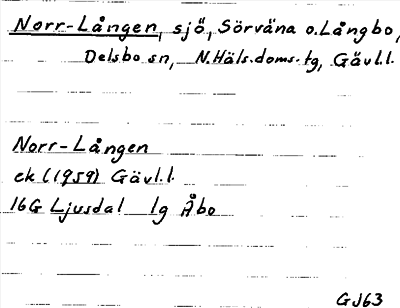 Norr-Lången, sjö, Sörväna o. Långbo,
Delsbo sn, N.Häls.doms.tg, Gävl.l.
Norr-Lången
ek (1959) Gävl.l.
16G Ljusdal 1g Åbo
GJ63